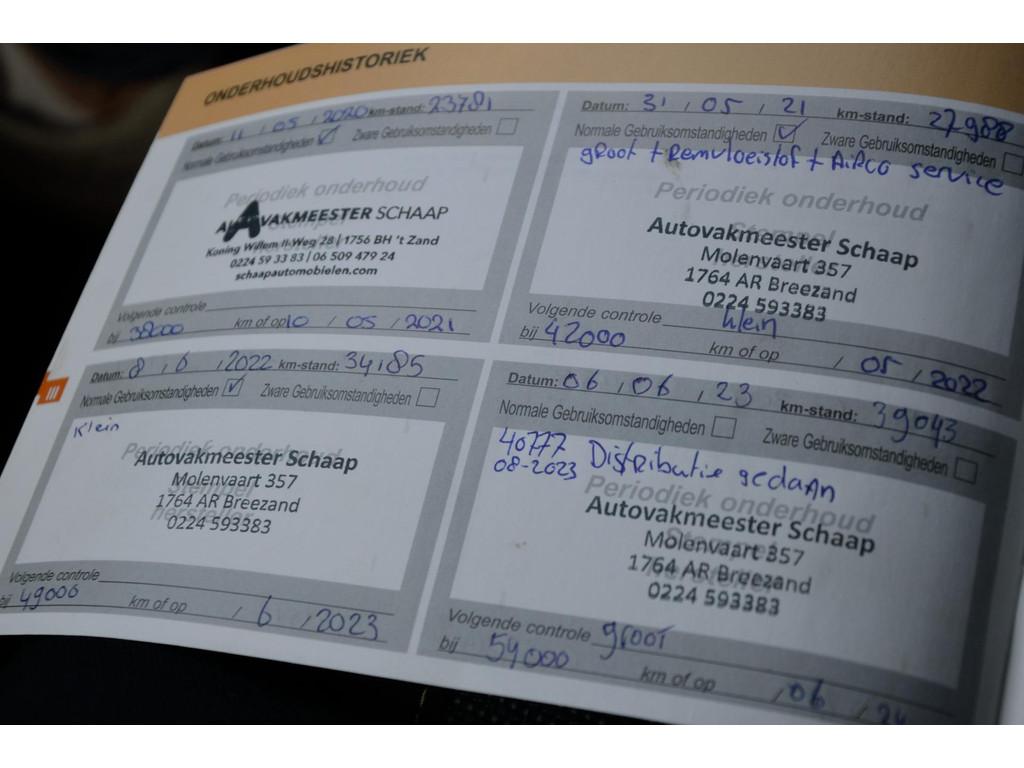 ONDERHOUDSHISTORIEK
Datum: 11 / 05 / 2020 km-stand: 23781
Normale Gebruiksomstandigheden ☑ Zware Gebruiksomstandigheden ☐
Periodiek onderhoud
AUTOVAKMEESTER SCHAAP
Koning Willem II-Weg 28 | 1756 BH 't Zand
0224 59 33 83 | 06 509 479 24
schaapautomobielen.com
Volgende controle
bij 38000 km of op 10 / 05 / 2021
Datum: 31 / 05 / 21 km-stand: 27988
Normale Gebruiksomstandigheden ☑ Zware Gebruiksomstandigheden ☐
groot + Remvloeistof + AiRco service
Periodiek onderhoud
Stempel
Autovakmeester Schaap
Molenvaart 357
1764 AR Breezand
0224 593383
Volgende controle klein
bij 42000 km of op / 05 / 2022
III
Datum: 8 / 6 / 2022 km-stand: 34185
Normale Gebruiksomstandigheden ☑ Zware Gebruiksomstandigheden ☐
Klein
Periodiek onderhoud
Stempel
hersteller
Autovakmeester Schaap
Molenvaart 357
1764 AR Breezand
0224 593383
Volgende controle
bij 49000 km of op / 6 / 2023
Datum: 06 / 06 / 23 km-stand: 39043
Normale Gebruiksomstandigheden ☐ Zware Gebruiksomstandigheden ☐
40777
08-2023 Distributie gedaan
Periodiek onderhoud
Stempel
hersteller
Autovakmeester Schaap
Molenvaart 357
1764 AR Breezand
0224 593383
Volgende controle groot
bij 54000 km of op / 06 / 24